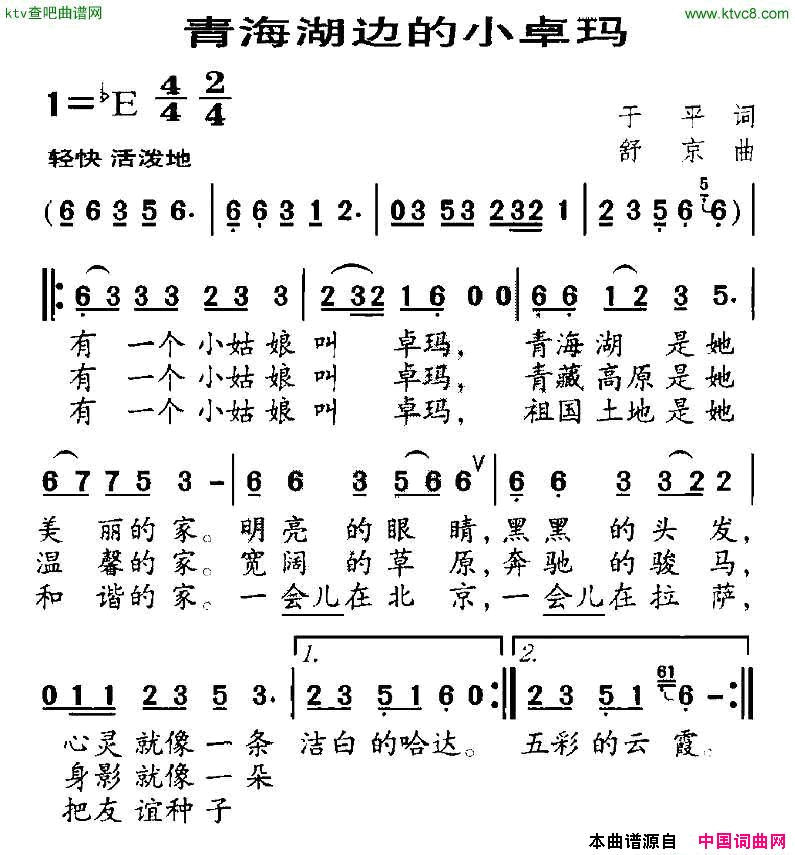 ktv查吧曲谱网 www.ktvc8.com
青海湖边的小卓玛
1=♭E 4/4 2/4
于 平 词
轻快 活泼地 舒 京 曲
(6 6 3 5 6. | 6 6 3 1 2. | 03 53 232 1 | 23 5 6 5 6)
6 3 33 23 3 | 232 16 0 0 | 66 12 3 5.
有 一个小姑娘叫 卓玛, 青海湖 是她
有 一个小姑娘叫 卓玛, 青藏高原是她
有 一个小姑娘叫 卓玛, 祖国土地是她
67 75 3 - | 66 3 56 6 V | 66 3 32 2
美 丽的家。明亮 的眼 睛,黑黑 的头 发,
温 馨的家。宽阔 的草 原,奔驰 的骏 马,
和 谐的家。一会儿在北 京,一会儿在拉 萨,
1. 2.
011 23 5 3. | 23 51 60 :| 23 51 61 6 - :|
心灵就像一条 洁白的哈达。 五彩的云霞。
身影就像一朵
把友谊种子
本曲谱源自 中国词曲网